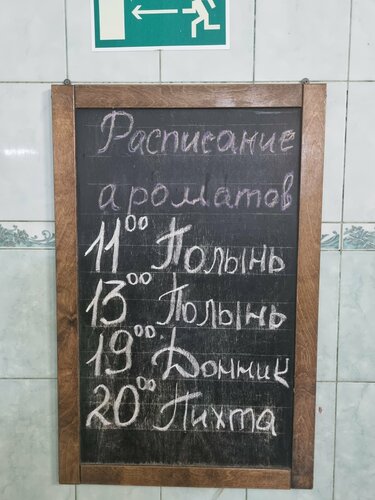 Расписание
ароматов
11⁰⁰ Полынь
13⁰⁰ Полынь
19⁰⁰ Донник
20⁰⁰ Пихта